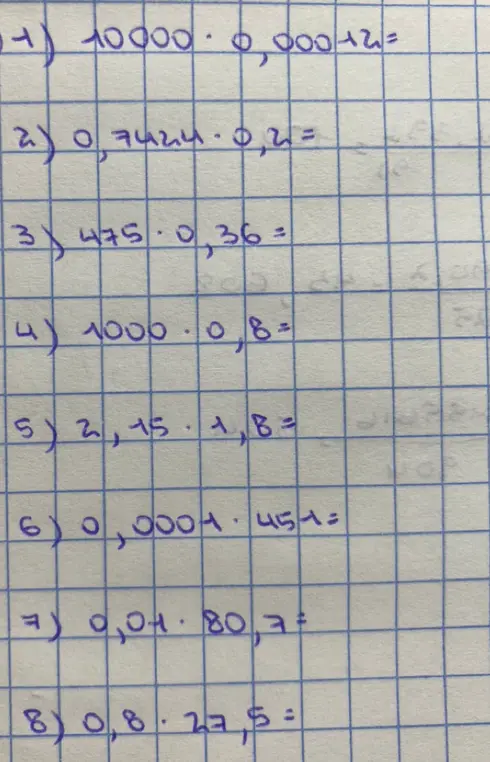 1) 10000 · 0,00012=
2) 0,7424 · 0,2=
3) 475 · 0,36=
4) 1000 · 0,8=
5) 2,15 · 1,8=
6) 0,0001 · 451=
7) 0,01 · 80,7=
8) 0,8 · 27,5=